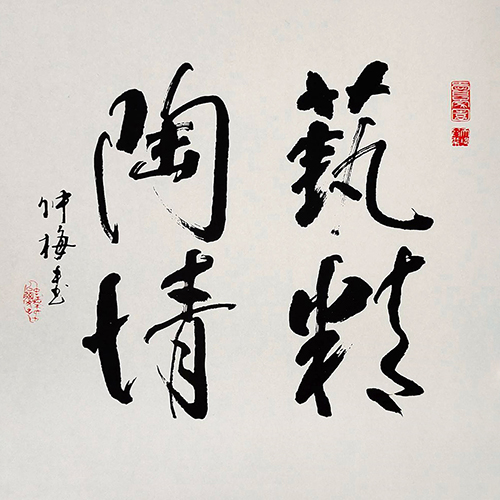 藝精
陶情
仲梅書